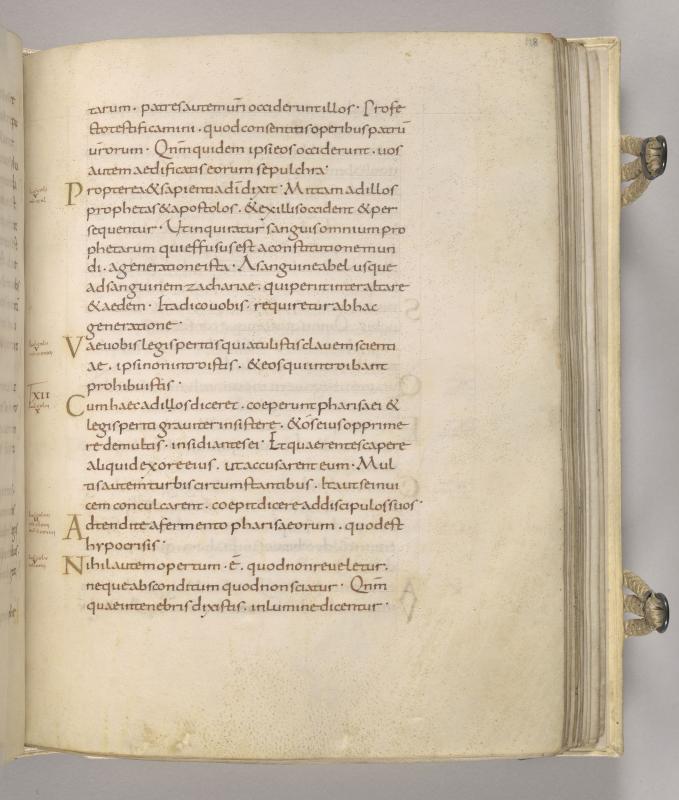 118
tarum · patres autem ur̄i occiderunt illos · Profe
cto testificamini · quod consentitis operibus patrū
ur̄orum · Qnm̄ quidem ipsi eos occiderunt · uos
autem aedificatis eorum sepulchra ·
Propterea & sapientia dī dixit · Mittam ad illos
prophetas & apostolos · & ex illis occident & per
sequentur · Ut inquiratur sanguis omnium pro
phetarum qui effusus est a constitutione mun
di · a generatione ista · A sanguine abel usque
ad sanguinem zachariae · qui periit inter altare
& aedem · Ita dico uobis · requiretur ab hac
generatione ·
Vae uobis legisperitis quia tulistis clauem scienti
ae · ipsi non introistis · & eos qui introibant
prohibuistis ·
XII
Cum haec ad illos diceret · coeperunt pharisaei &
legisperiti grauiter insistere · & ós eius opprime
re de multis · insidiantes ei · Et quaerentes capere
aliquid ex ore eius · ut accusarent eum · Mul
tis autem turbis circumstantibus · Ita ut se inui
cem conculcarent · coepit dicere ad discipulos suos ·
Adtendite a fermento pharisaeorum · quod est
hypocrisis ·
Nihil autem opertum · ē · quod non reueletur ·
neque absconditum quod non sciatur · Qnm̄
quae in tenebris dixistis · in lumine dicentur ·